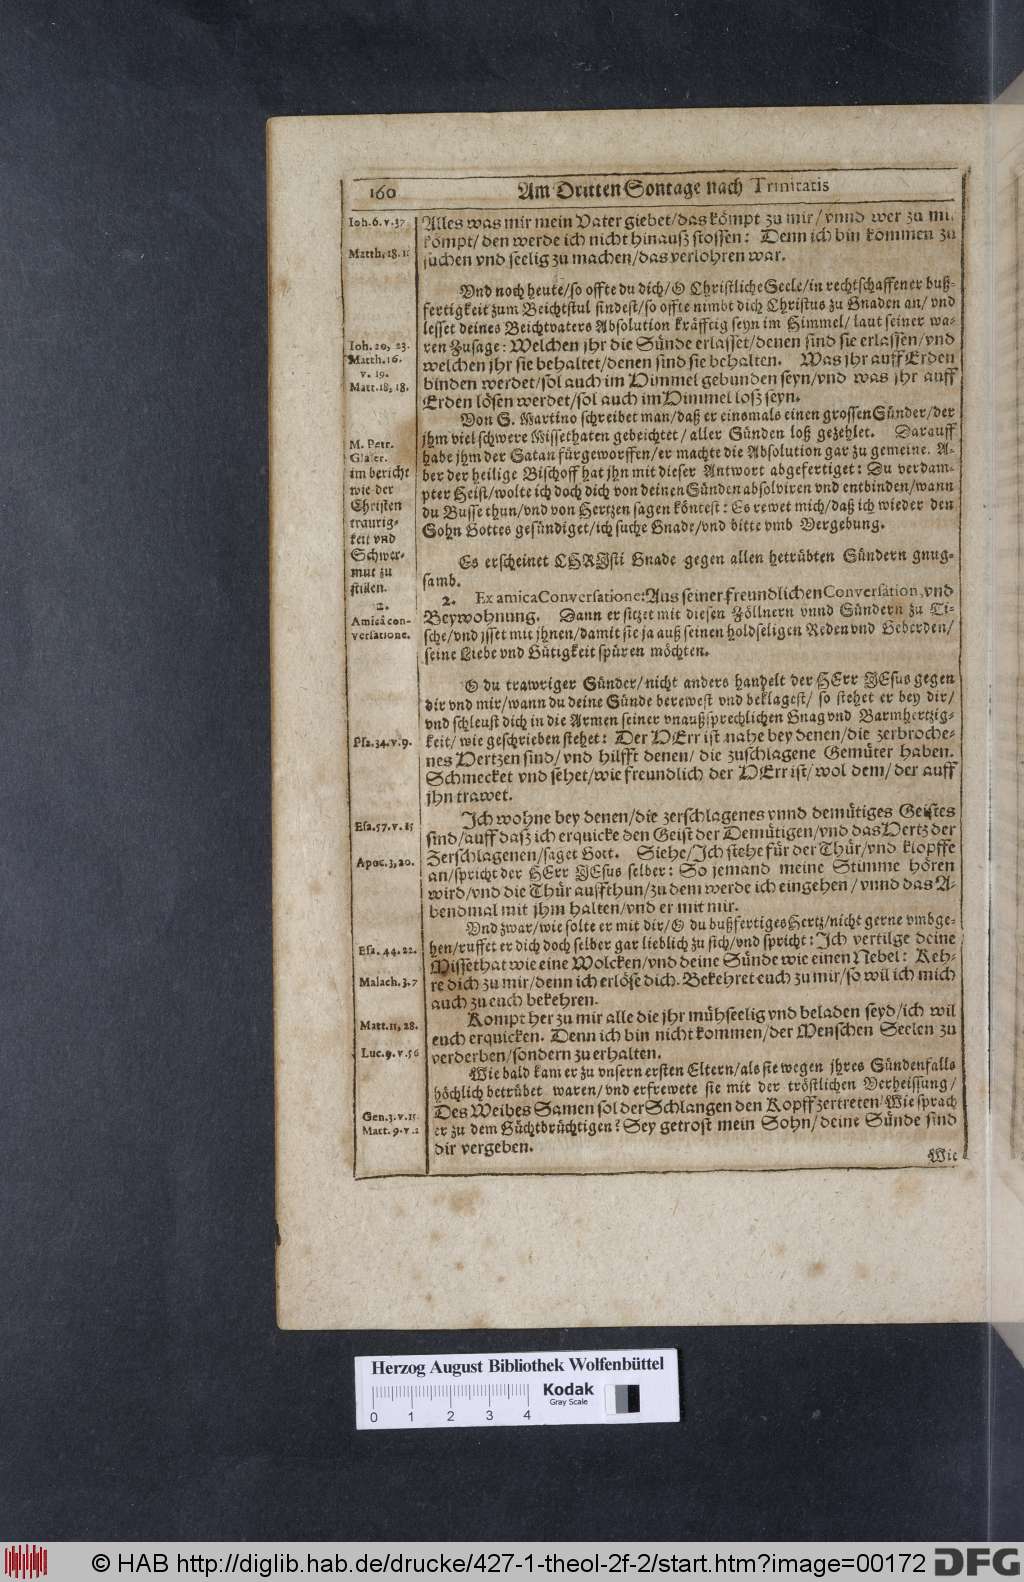 160 Am Dritten Sontage nach Trinitatis
Ioh. 6. v. 37.
Matth. 18. 11
Alles was mir mein Vater giebet/das kömpt zu mir/ vnnd wer zu mir
kömpt/ den werde ich nicht hinauß stossen: Denn ich bin kommen zu
suchen vnd seelig zu machen/das verlohren war.
Vnd noch heute/so offte du dich/O Christliche Seele/in rechtschaffener buß-
fertigkeit zum Beichtstul findest/so offte nimbt dich Christus zu Gnaden an/ vnd
lesset deines Beichtvaters Absolution kräfftig seyn im Himmel/ laut seiner wa-
Ioh. 20, 23.
Matth. 16.
v. 19.
Matt. 18, 18.
ren Zusage: Welchen jhr die Sünde erlasset/denen sind sie erlassen/vnd
welchen jhr sie behaltet/denen sind sie behalten. Was jhr auff Erden
binden werdet/sol auch im Himmel gebunden seyn/vnd was jhr auff
Erden lösen werdet/sol auch im Himmel loß seyn.
Von S. Martino schreibet man/daß er einsmals einen grossen Sünder/der
M. Petr.
Glaser.
im bericht
wie der
Christen
traurig-
keit vnd
Schwer-
mut zu
stillen.
jhm viel schwere Missethaten gebeichtet/ aller Sünden loß gezehlet. Darauff
habe jhm der Satan fürgeworffen/er machte die Absolution gar zu gemeine. A-
ber der heilige Bischoff hat jhn mit dieser Antwort abgefertiget: Du verdam-
pter Geist/wolte ich doch dich von deinen Sünden absolviren vnd entbinden/wann
du Busse thun/vnd von Hertzen sagen köntest: Es rewet mich/daß ich wieder den
Sohn Gottes gesündiget/ich suche Gnade/vnd bitte vmb Vergebung.
Es erscheinet CHRIsti Gnade gegen allen betrübten Sündern gnug-
samb.
2.
Amicâ con-
versatione.
2. Ex amica Conversatione: Aus seiner freundlichen Conversation, vnd
Beywohnung. Dann er sitzet mit diesen Zöllnern vnnd Sündern zu Ti-
sche/vnd jsset mit jhnen/damit sie ja auß seinen holdseligen Reden vnd Geberden/
seine Liebe vnd Gütigkeit spüren möchten.
O du trawriger Sünder/nicht anders handelt der HErr JEsus gegen
dir vnd mir/wann du deine Sünde berewest vnd beklagest/ so stehet er bey dir/
vnd schleust dich in die Armen seiner vnaußsprechlichen Gnag vnd Barmhertzig-
Psa. 34. v. 9.
keit/ wie geschrieben stehet: Der HErr ist nahe bey denen/die zerbroche-
nes Hertzen sind/ vnd hilfft denen/ die zuschlagene Gemüter haben.
Schmecket vnd sehet/wie freundlich der HErr ist/wol dem/ der auff
jhn trawet.
Esa. 57. v. 15
Ich wohne bey denen/die zerschlagenes vnnd demütiges Geistes
sind/auff daß ich erquicke den Geist der Demütigen/vnd das Hertz der
Apoc. 3, 20.
Zerschlagenen/saget Gott. Siehe/Ich stehe für der Thür/vnd klopffe
an/spricht der HErr JEsus selber: So jemand meine Stimme hören
wird/vnd die Thür auffthun/zu dem werde ich eingehen/ vnnd das A-
bendmal mit jhm halten/vnd er mit mir.
Vnd zwar/wie solte er mit dir/O du bußfertiges Hertz/nicht gerne vmbge-
Esa. 44. 22.
Malach. 3. 7
hen/ruffet er dich doch selber gar lieblich zu sich/vnd spricht: Ich vertilge deine
Missethat wie eine Wolcken/vnd deine Sünde wie einen Nebel: Keh-
re dich zu mir/denn ich erlöse dich. Bekehret euch zu mir/so wil ich mich
auch zu euch bekehren.
Matt. 11, 28.
Luc. 9. v. 56
Kompt her zu mir alle die jhr mühseelig vnd beladen seyd/ich wil
euch erquicken. Denn ich bin nicht kommen/der Menschen Seelen zu
verderben/sondern zu erhalten.
Wie bald kam er zu vnsern ersten Eltern/als sie wegen jhres Sündenfalls
höchlich betrübet waren/vnd erfrewete sie mit der tröstlichen Verheissung/
Gen. 3. v. 15
Matt. 9. v. 2
Des Weibes Samen sol der Schlangen den Kopff zertreten/Wie sprach
er zu dem Güchtbrüchtigen? Sey getrost mein Sohn/deine Sünde sind
dir vergeben.
Wie
Herzog August Bibliothek Wolfenbüttel
Kodak
Gray Scale
0 1 2 3 4
© HAB http://diglib.hab.de/drucke/427-1-theol-2f-2/start.htm?image=00172
DFG